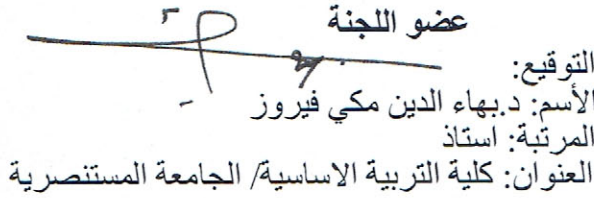 عضو اللجنة
التوقيع:
الأسم: د.بهاء الدين مكي فيروز
المرتبة: استاذ
العنوان: كلية التربية الاساسية/ الجامعة المستنصرية